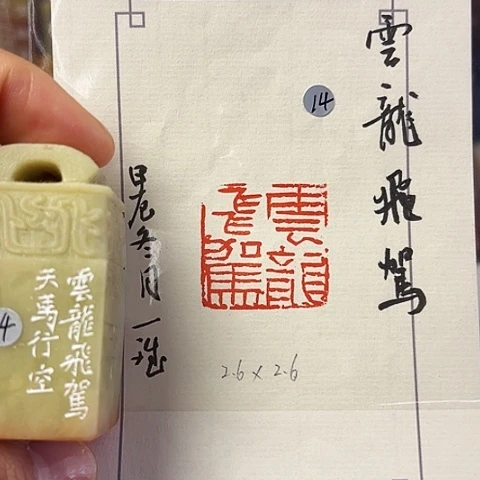 雲龍飛駕
14
雲龍飛駕
甲辰冬月一璡
2.6 × 2.6
雲龍飛駕
天馬行空
4